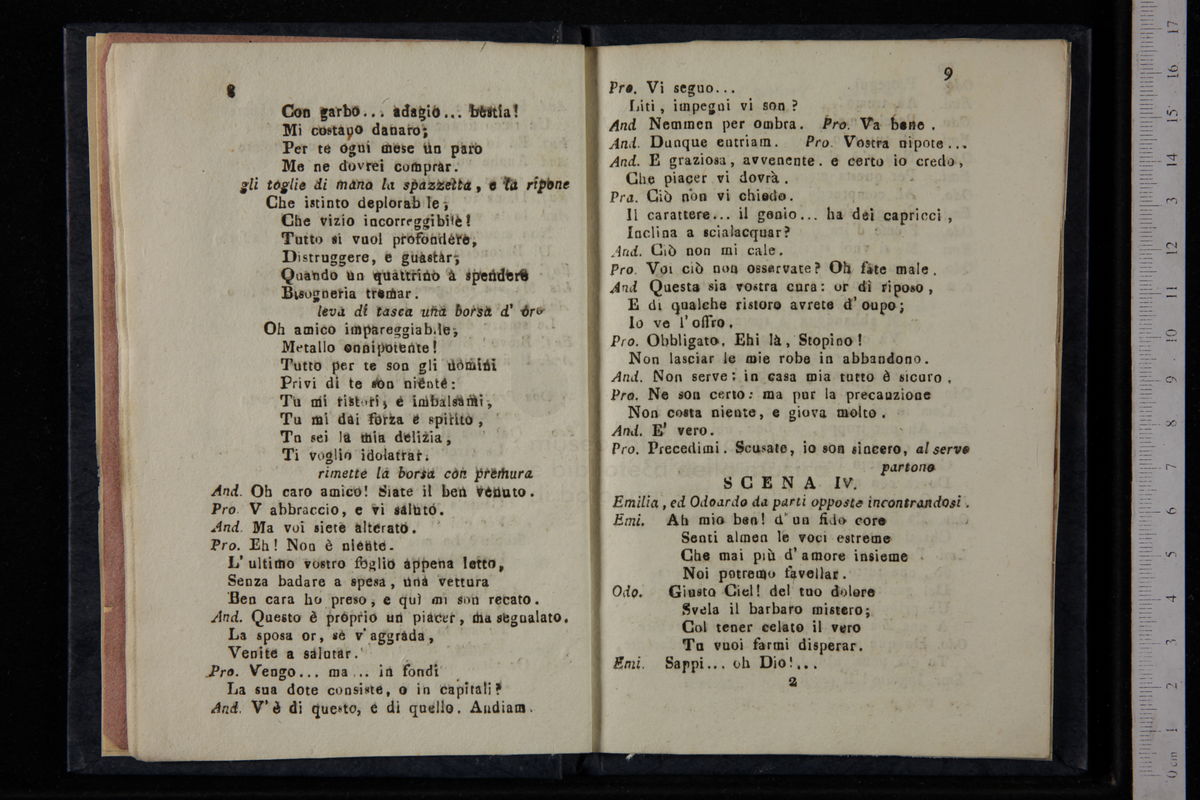 8
Con garbo... adagio... bestia!
Mi costano danaro;
Per te ogni mese un paro
Me ne dovrei comprar.
gli toglie di mano la spazzetta, e la ripone
Che istinto deplorabile;
Che vizio incorreggibile!
Tutto si vuol profondere,
Distruggere, e guastar;
Quando un quattrino a spendere
Bisogneria tremar.
leva di tasca una borsa d' oro
Oh amico impareggiabile,
Metallo onnipotente!
Tutto per te son gli uomini
Privi di te son niente:
Tu mi ristori, e imbalsami,
Tu mi dai forza e spirito,
Tu sei la mia delizia,
Ti voglio idolatrar.
rimette la borsa con premura
And. Oh caro amico! Siate il ben venuto.
Pro V abbraccio, e vi saluto.
And. Ma voi siete alterato.
Pro. Eh! Non è niente.
L' ultimo vostro foglio appena letto,
Senza badare a spesa, una vettura
Ben cara ho preso, e quì mi son recato.
And. Questo è proprio un piacer, ma segnalato.
La sposa or, se v' aggrada,
Venite a salutar.
Pro. Vengo... ma... in fondi
La sua dote consiste, o in capitali?
And. V' è di questo, e di quello. Andiam.
9
Pro. Vi seguo...
Liti, impegni vi son?
And Nemmen per ombra. Pro. Va bene.
And. Dunque entriam. Pro. Vostra nipote...
And. E graziosa, avvenente. e certo io credo,
Che piacer vi dovrà.
Pra. Ciò non vi chiedo.
Il carattere... il genio... ha dei capricci,
Inclina a scialacquar?
And. Ciò non mi cale.
Pro. Voi ciò non osservate? Oh fate male.
And Questa sia vostra cura: or di riposo,
E di qualche ristoro avrete d' oupo;
Io ve l' offro.
Pro. Obbligato. Ehi là, Stopino!
Non lasciar le mie robe in abbandono.
And. Non serve: in casa mia tutto è sicuro.
Pro. Ne son certo: ma pur la precauzione
Non costa niente, e giova molto.
And. E' vero.
Pro. Precedimi. Scusate, io son sincero, al servo
partono
SCENA IV.
Emilia, ed Odoardo da parti opposte incontrandosi.
Emi. Ah mio ben! d' un fido core
Senti almen le voci estreme
Che mai più d' amore insieme
Noi potremo favellar.
Odo. Giusto Ciel! del tuo dolore
Svela il barbaro mistero;
Col tener celato il vero
Tu vuoi farmi disperar.
Emi. Sappi... oh Dio!...
2
0 cm 1 2 3 4 5 6 7 8 9 10 11 12 13 14 15 16 17